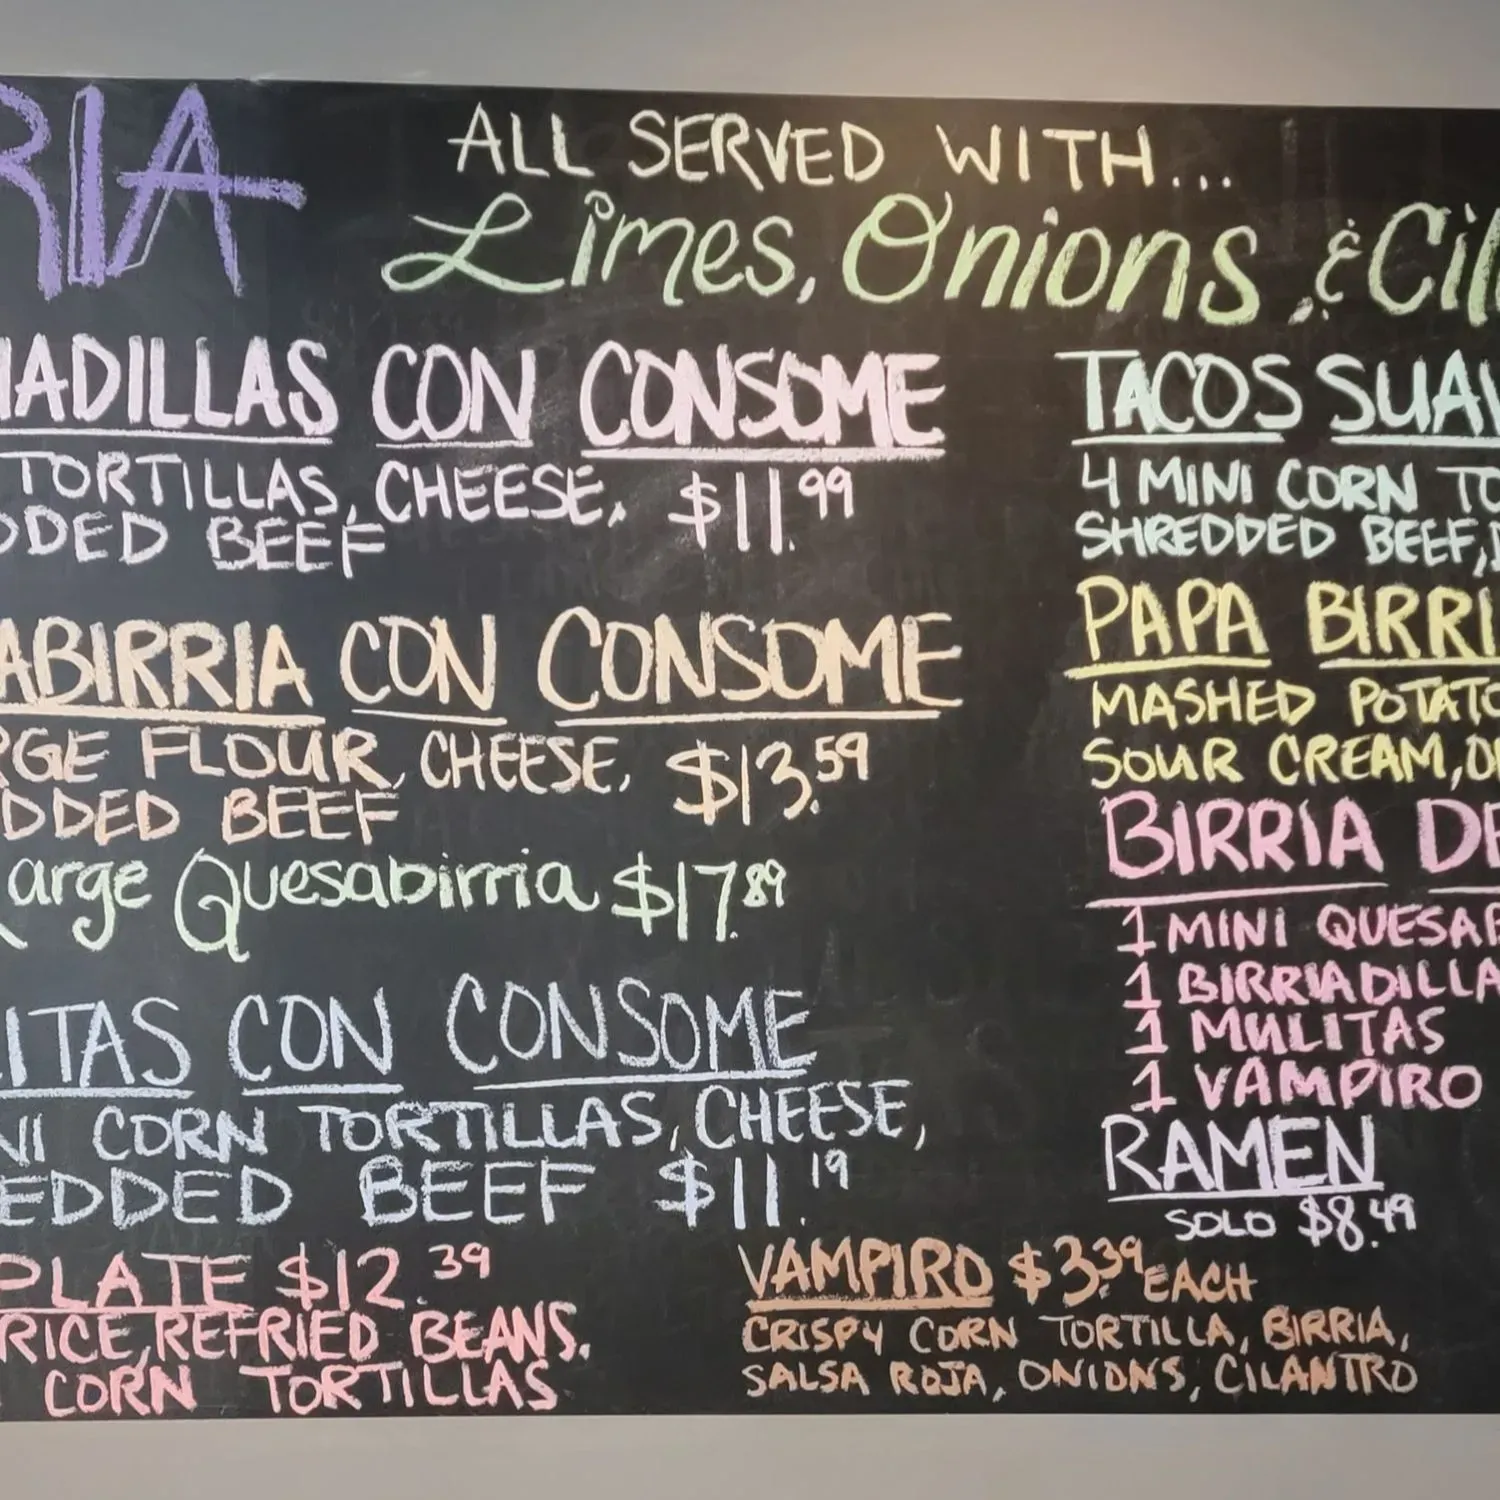 RIA
ALL SERVED WITH...
Limes, Onions, & Cil
ADILLAS CON CONSOME
TORTILLAS, CHEESE, $11.99
DDED BEEF
ABIRRIA CON CONSOME
RGE FLOUR, CHEESE, $13.59
DDED BEEF
Large Quesabirria $17.89
ITAS CON CONSOME
NI CORN TORTILLAS, CHEESE,
EDDED BEEF $11.19
PLATE $12.39
RICE, REFRIED BEANS,
CORN TORTILLAS
TACOS SUAV
4 MINI CORN TO
SHREDDED BEEF,
PAPA BIRRI
MASHED POTATO
SOUR CREAM,
BIRRIA DE
1 MINI QUESAB
1 BIRRIADILLA
1 MULITAS
1 VAMPIRO
RAMEN
SOLO $8.49
VAMPIRO $3.39 EACH
CRISPY CORN TORTILLA, BIRRIA,
SALSA ROJA, ONIONS, CILANTRO